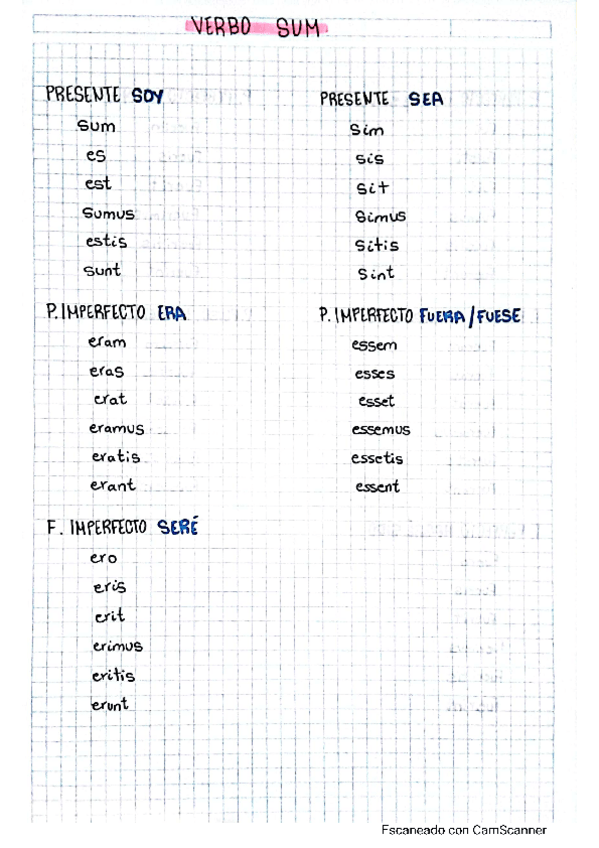 VERBO SUM
PRESENTE SOY
sum
es
est
sumus
estis
sunt
PRESENTE SEA
sim
sis
sit
simus
sitis
sint
P. IMPERFECTO ERA
eram
eras
erat
eramus
eratis
erant
P. IMPERFECTO FUERA/FUESE
essem
esses
esset
essemus
essetis
essent
F. IMPERFECTO SERÉ
ero
eris
erit
erimus
eritis
erunt
Escaneado con CamScanner